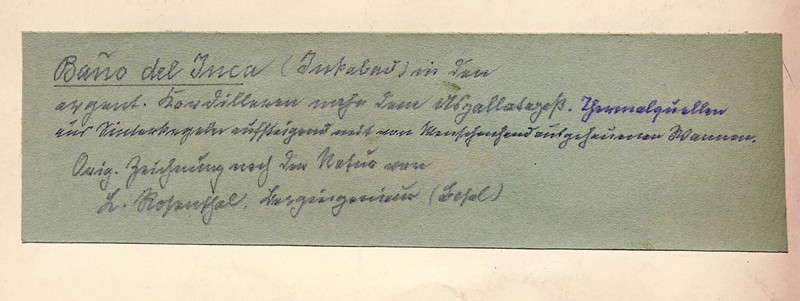 Baño del Inca (Inkabad) in den
argent. Kordilleren nahe dem Usgallatapaß. Thermalquellen
aus Sinterkegeln aufsteigend mit von Menschenhand ausgehauenen Wannen.
Orig. Zeichnung nach der Natur von
L. Rosenthal, Bergingenieur